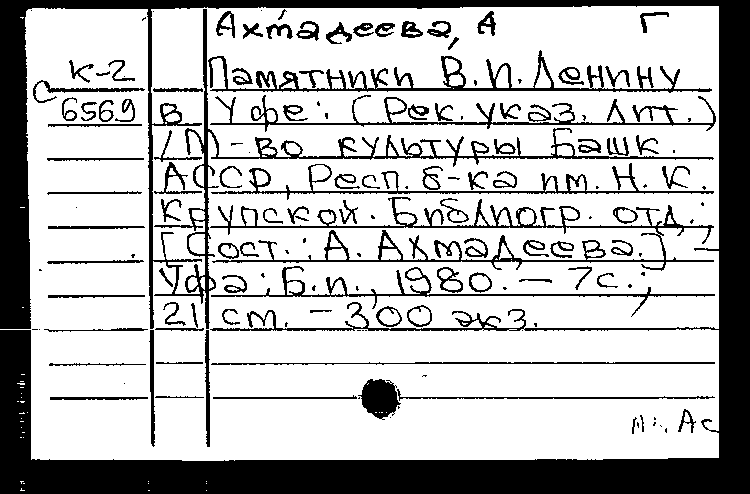 Ахмадеева, А Г
К-2 Памятники В. И. Ленину
С 6569 в Уфе: (Рек. указ. лит.)
/М-во культуры Башк.
АССР, Респ. б-ка им. Н. К.
Крупской. Библиогр. отд.;
[Сост.: А. Ахмадеева.]. –
Уфа: Б.и., 1980. – 7с.;
21 см. – 300 экз.
Ас